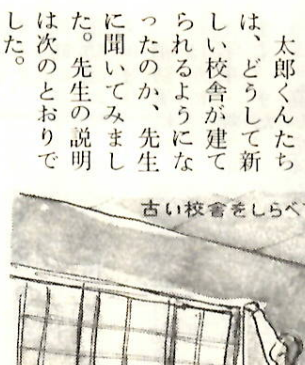 太郎くんたち
は、どうして新
しい校舎が建て
られるようにな
ったのか、先生
に聞いてみまし
た。先生の説明
は次のとおりで
した。
古い校舎をしらべ